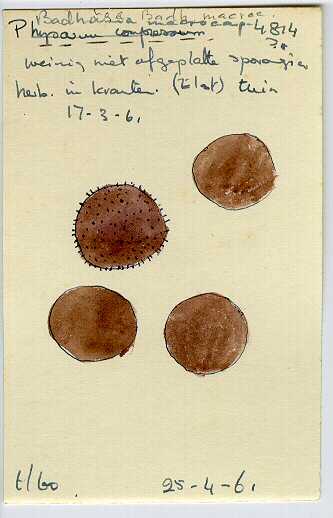 Badhamia Badh. macroc.
Physarum compressum macrocarp. 4814
weinig niet afgeplatte sporangiën
herb. in kranten. (Elst) tuin
17-3-61
t/60 25-4-61